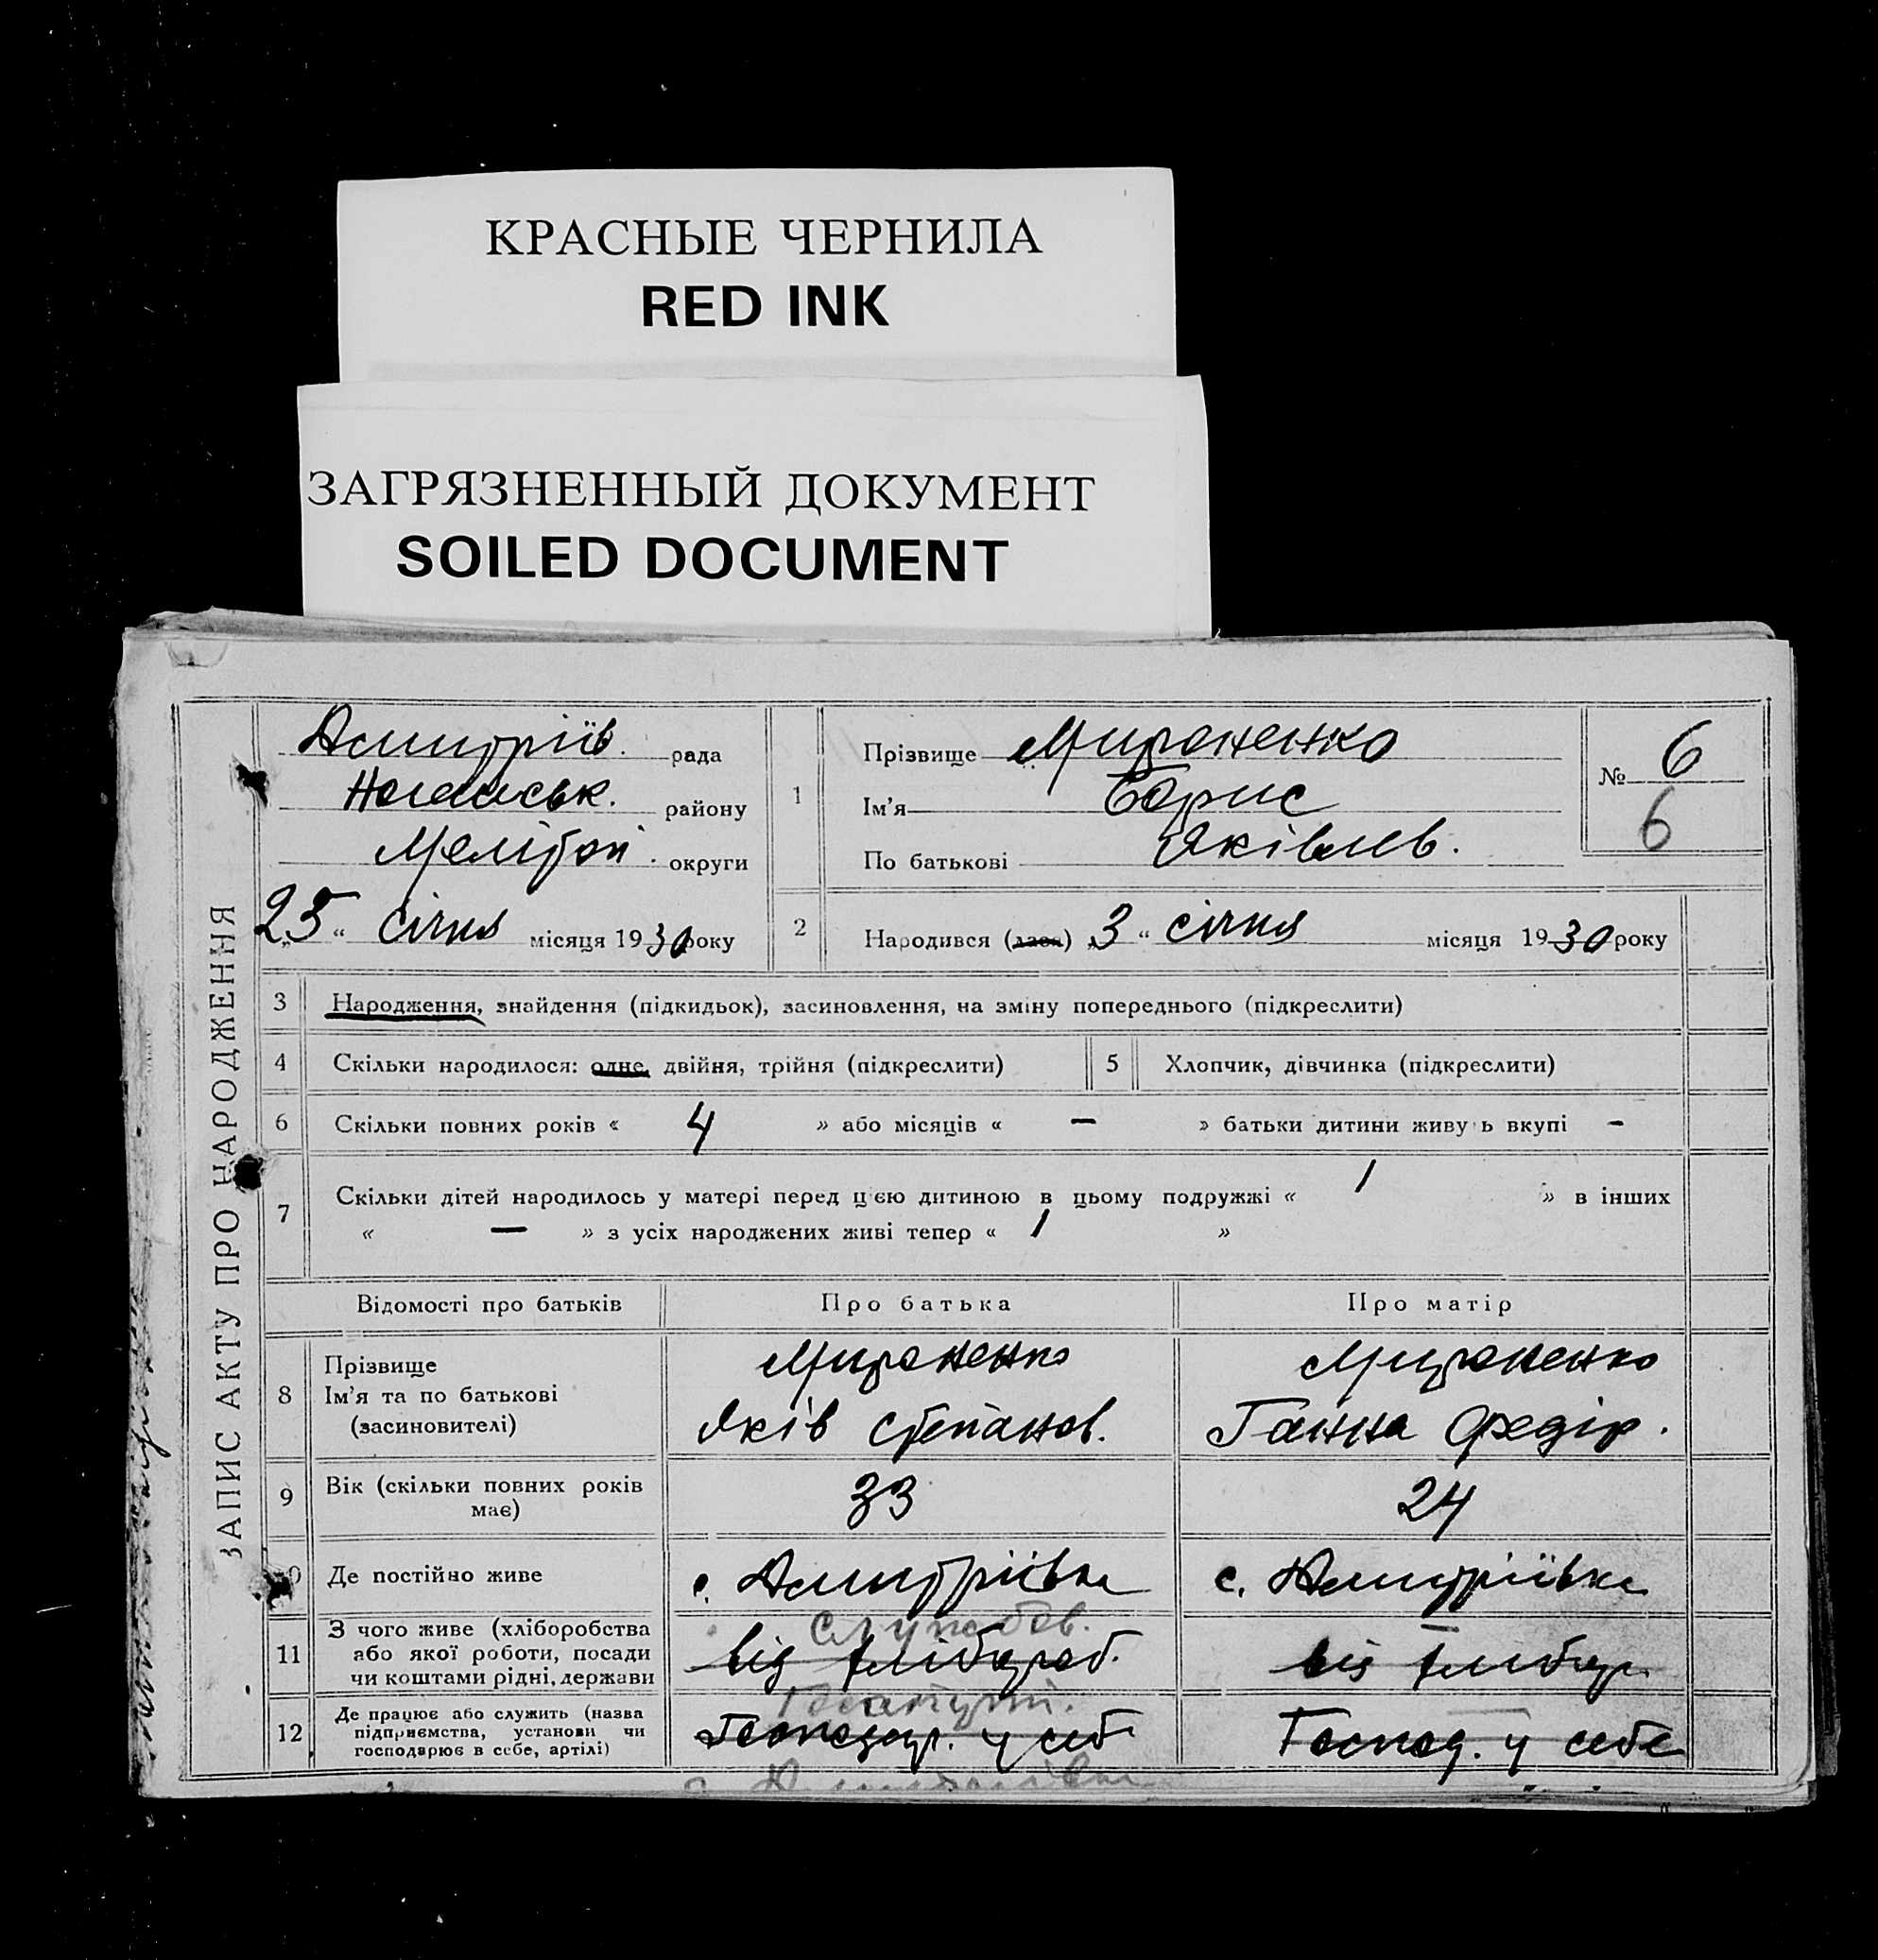 КРАСНЫЕ ЧЕРНИЛА
RED INK
ЗАГРЯЗНЕННЫЙ ДОКУМЕНТ
SOILED DOCUMENT
ЗАПИС АКТУ ПРО НАРОДЖЕННЯ
Дмитріїв. рада
Ногайськ. району
Мелітоп. округи
„25“ січня місяця 1930 року
1
Прізвище Мироненко
Ім'я Борис
По батькові Яківлев.
№ 6
6
2 Народився (лась) „3“ січня місяця 1930 року
3 Народження, знайдення (підкидьок), засиновлення, на зміну попереднього (підкреслити)
4 Скільки народилося: одне, двійня, трійня (підкреслити) 5 Хлопчик, дівчинка (підкреслити)
6 Скільки повних років « 4 » або місяців « — » батьки дитини живуть вкупі –
7 Скільки дітей народилось у матері перед цією дитиною в цьому подружжі « 1 » в інших
« — » з усіх народжених живі тепер « 1 »
Відомості про батьків Про батька Про матір
8 Прізвище
Ім'я та по батькові
(засиновителі)
Мироненко
Яків Степанов.
Мироненко
Ганна Федір.
9 Вік (скільки повних років має) 33 24
10 Де постійно живе с. Дмитріївка с. Дмитріївка
11 З чого живе (хліборобства
або якої роботи, посади
чи коштами рідні, держави
службов.
від хлібороб. від хлібор.
12 Де працює або служить (назва
підприємства, установи чи
господарює в себе, артілі)
Господар. у себе Господ. у себе